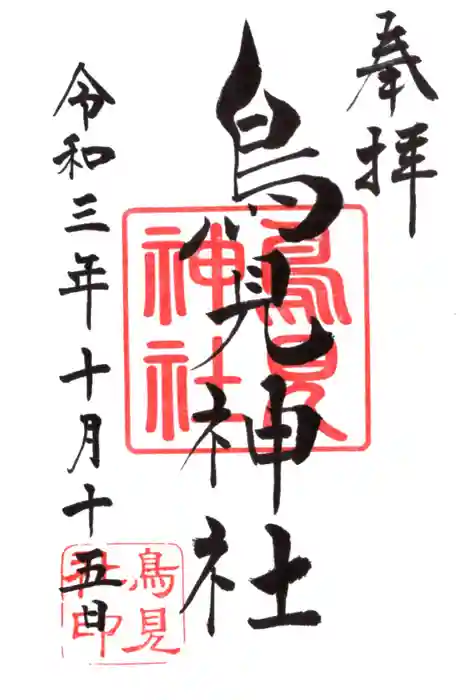 奉拝
鳥見神社
令和三年十月十五日
鳥見
神社
鳥見
社印